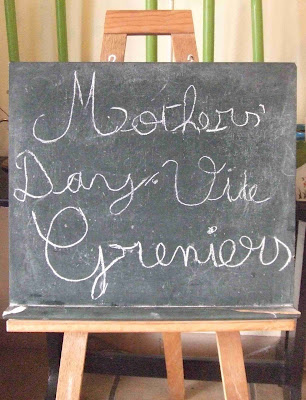 Mothers'
Day Vide
Greniers